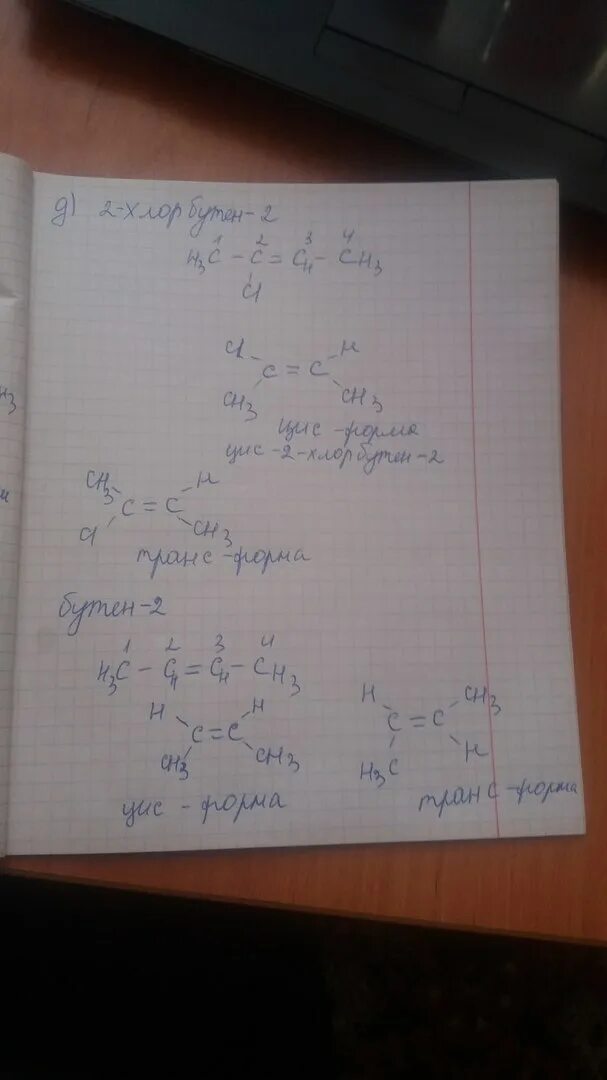 д) 2-хлорбутен-2
1 2 3 4
H3C - C = CH - CH3
Cl
Cl H
C = C
CH3 CH3
цис-форма
цис-2-хлорбутен-2
CH3 H
C = C
Cl CH3
транс-форма
бутен-2
1 2 3 4
H3C - CH = CH - CH3
H H
C = C
CH3 CH3
цис - форма
H CH3
C = C
H3C H
транс-форма